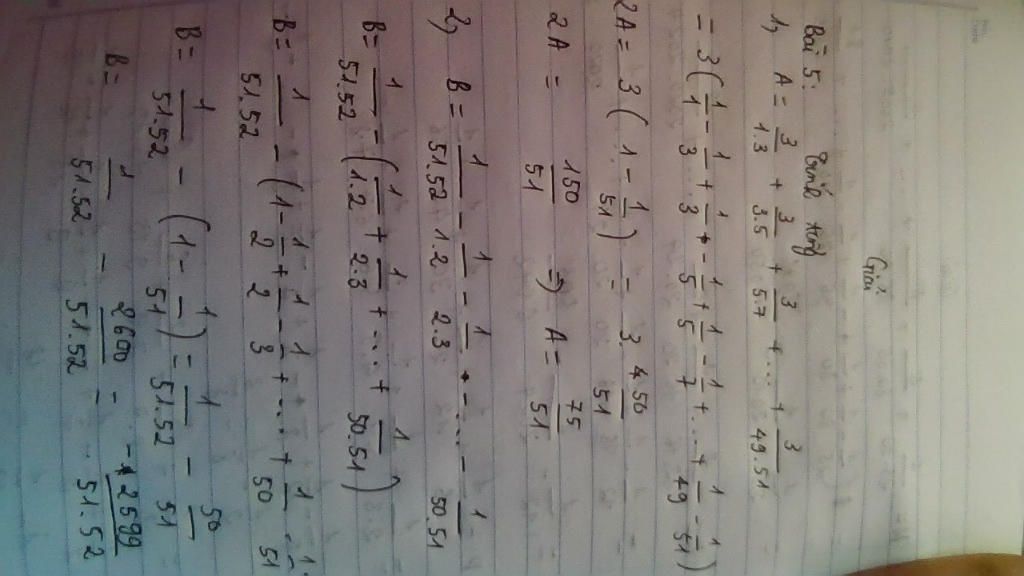 Giải
Bài 5: Tính tổng
1, A = 3/1.3 + 3/3.5 + 3/5.7 + ... + 3/49.51
= 3(1/1 - 1/3 + 1/3 - 1/5 + 1/5 - 1/7 + ... + 1/49 - 1/51)
2A = 3(1 - 1/51) = 3 . 50/51
2A = 150/51 => A = 75/51.
2, B = 1/51.52 - 1/1.2 - 1/2.3 - ... - 1/50.51
B = 1/51.52 - (1/1.2 + 1/2.3 + ... + 1/50.51)
B = 1/51.52 - (1 - 1/2 + 1/2 - 1/3 + ... + 1/50 - 1/51
B = 1/51.52 - (1 - 1/51) = 1/51.52 - 50/51
B = 1/51.52 - 2600/51.52 = -2599/51.52